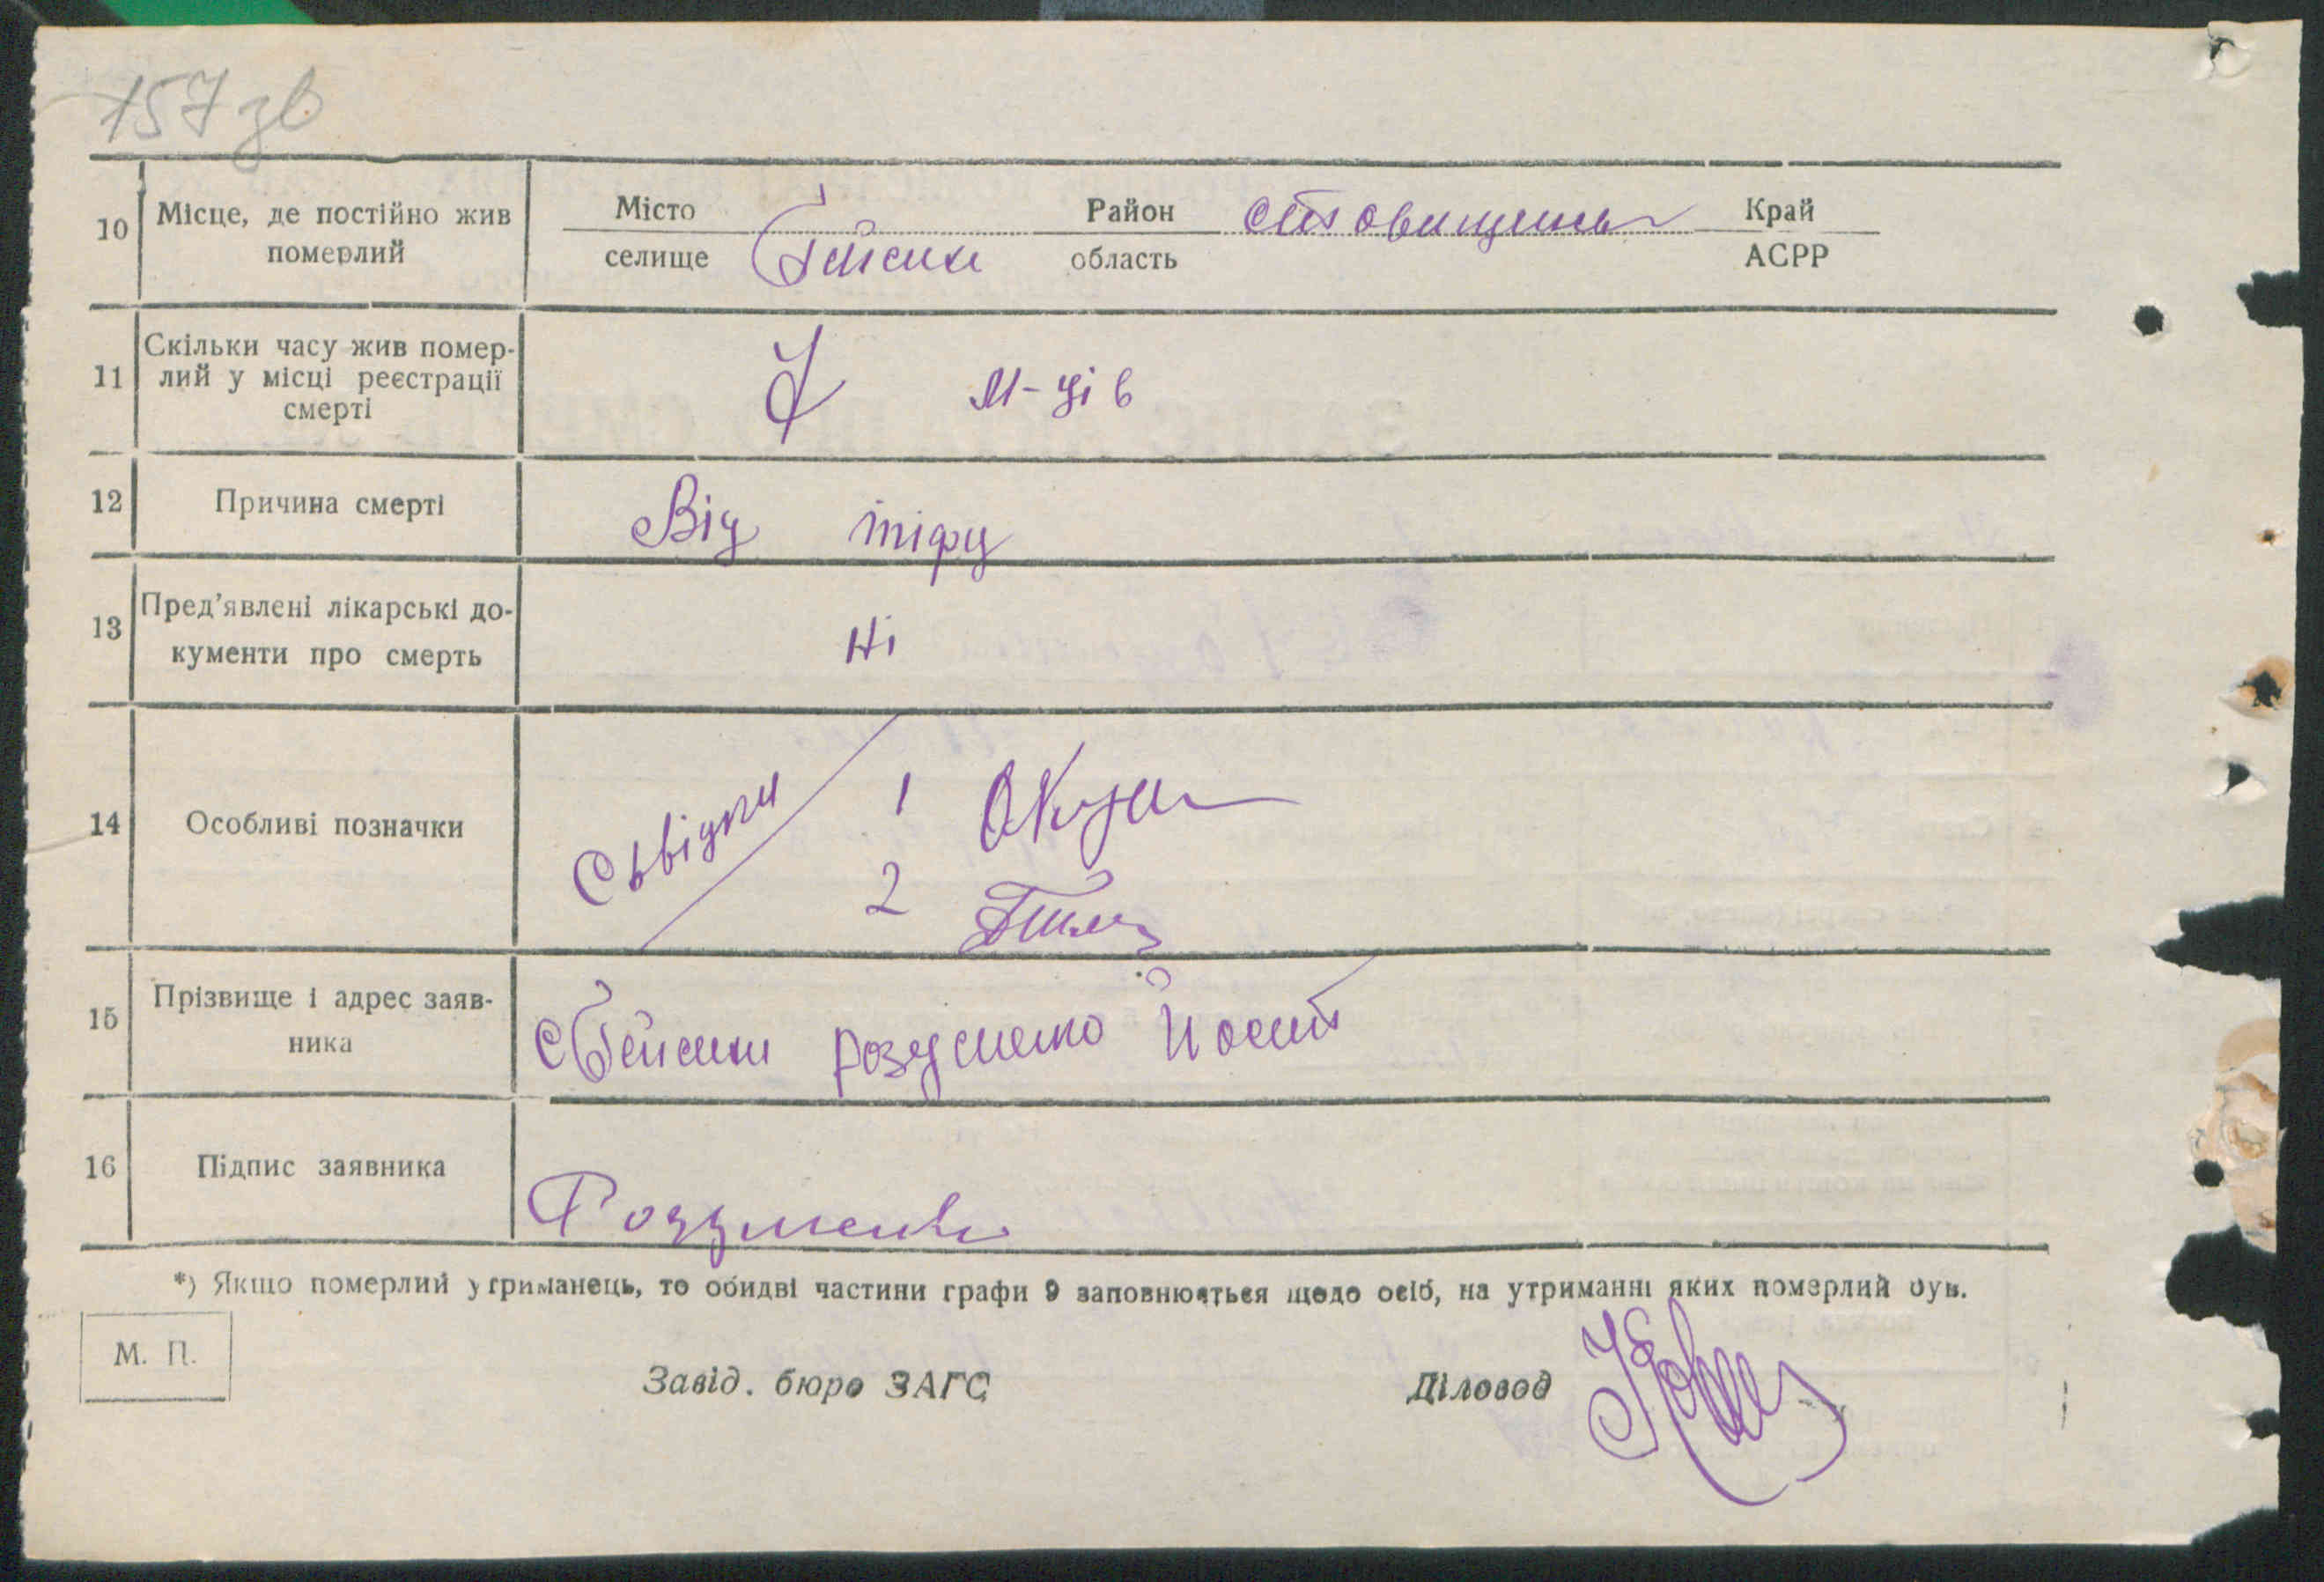 157 зв
10 Місце, де постійно жив померлий Місто селище Гейсиха Район область Ставищенс Край АСРР
11 Скільки часу жив помер-
лий у місці реєстрації
смерті
м-ців
12 Причина смерті Від тіфу
13 Пред'явлені лікарські до-
кументи про смерть Ні
14 Особливі позначки Сьвідки 1
2
15 Прізвище і адрес заяв-
ника
с Гейсихи Розуменко Йосип
16 Підпис заявника Розуменко
*) Якщо померлий утриманець, то обидві частини графи 9 заповнюються щодо осіб, на утриманні яких померлий був.
М. П.
Завід. бюро ЗАГС Діловод